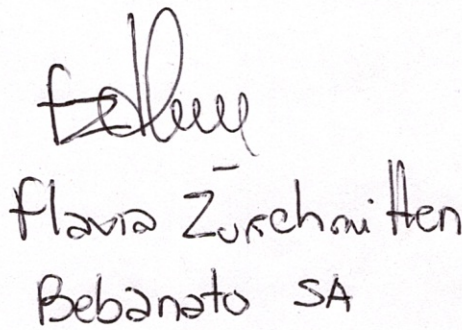 Flavia Zurschmitten
Bebanato SA